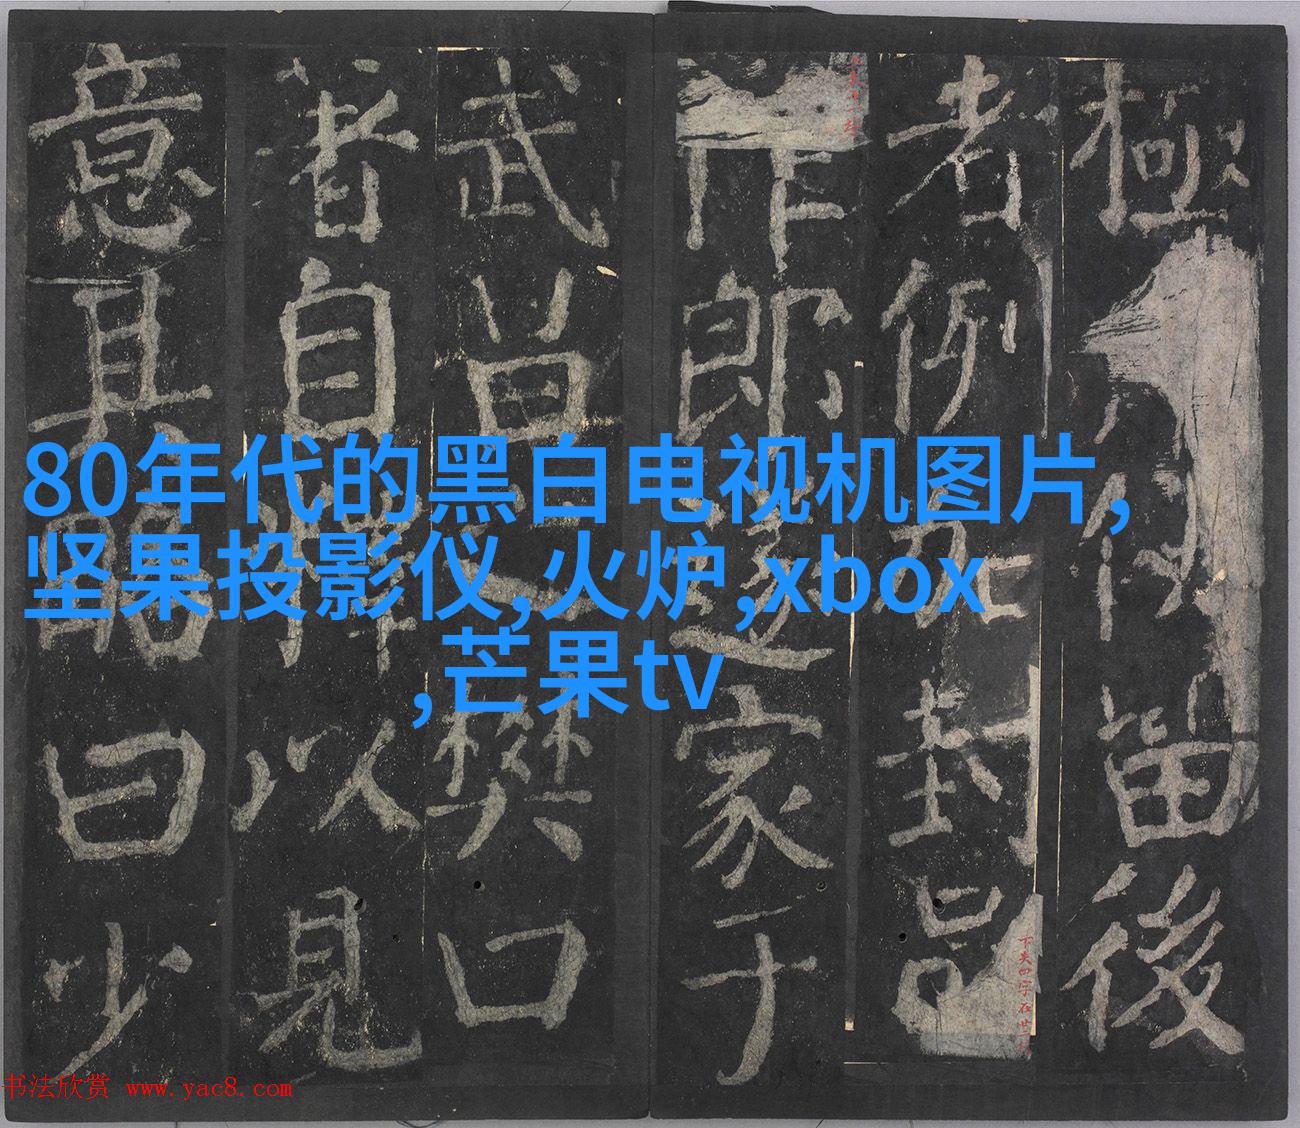 80年代的黑白电视机图片,
坚果投影仪,火炉,xbox
,芒果tv
極使留後
者例加封邑
作郎遂家于
武昌樊口
著自釋以見
意其曰少
书法欣赏 www.yac8.com